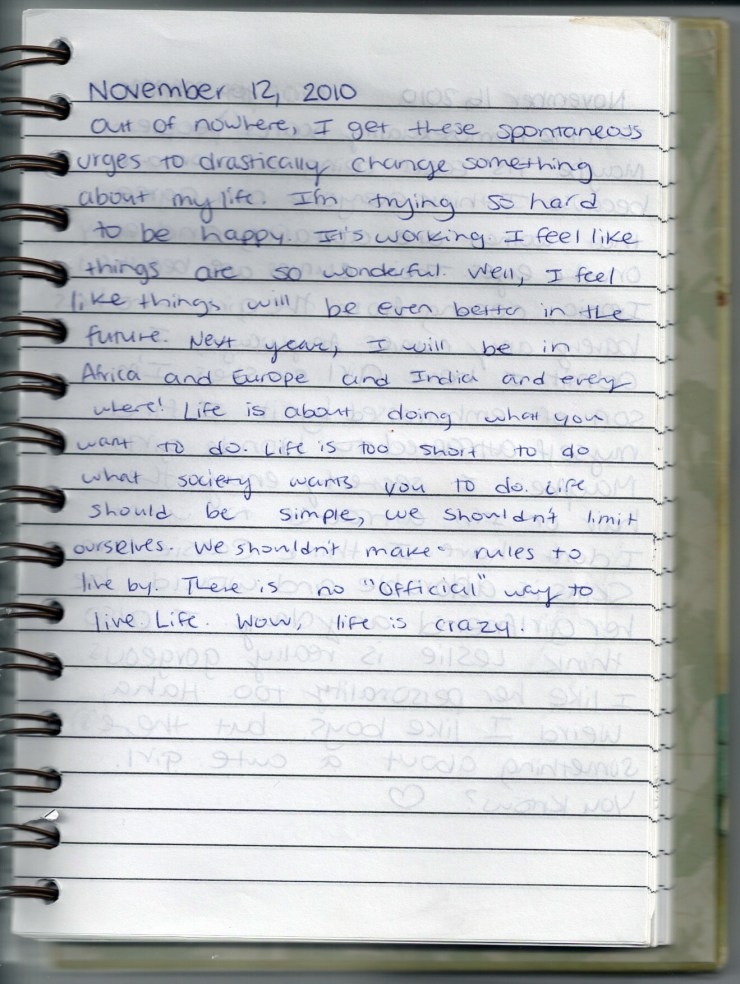 November 12, 2010
out of nowhere, I get these spontaneous
urges to drastically change something
about my life. I'm trying so hard
to be happy. It's working. I feel like
things are so wonderful. Well, I feel
like things will be even better in the
future. Next year, I will be in
Africa and Europe and India and every
where! Life is about doing what you
want to do. Life is too short to do
what society wants you to do. Life
should be simple, we shouldn't limit
ourselves. We shouldn't make rules to
live by. There is no "official" way to
live Life. Wow, life is crazy.